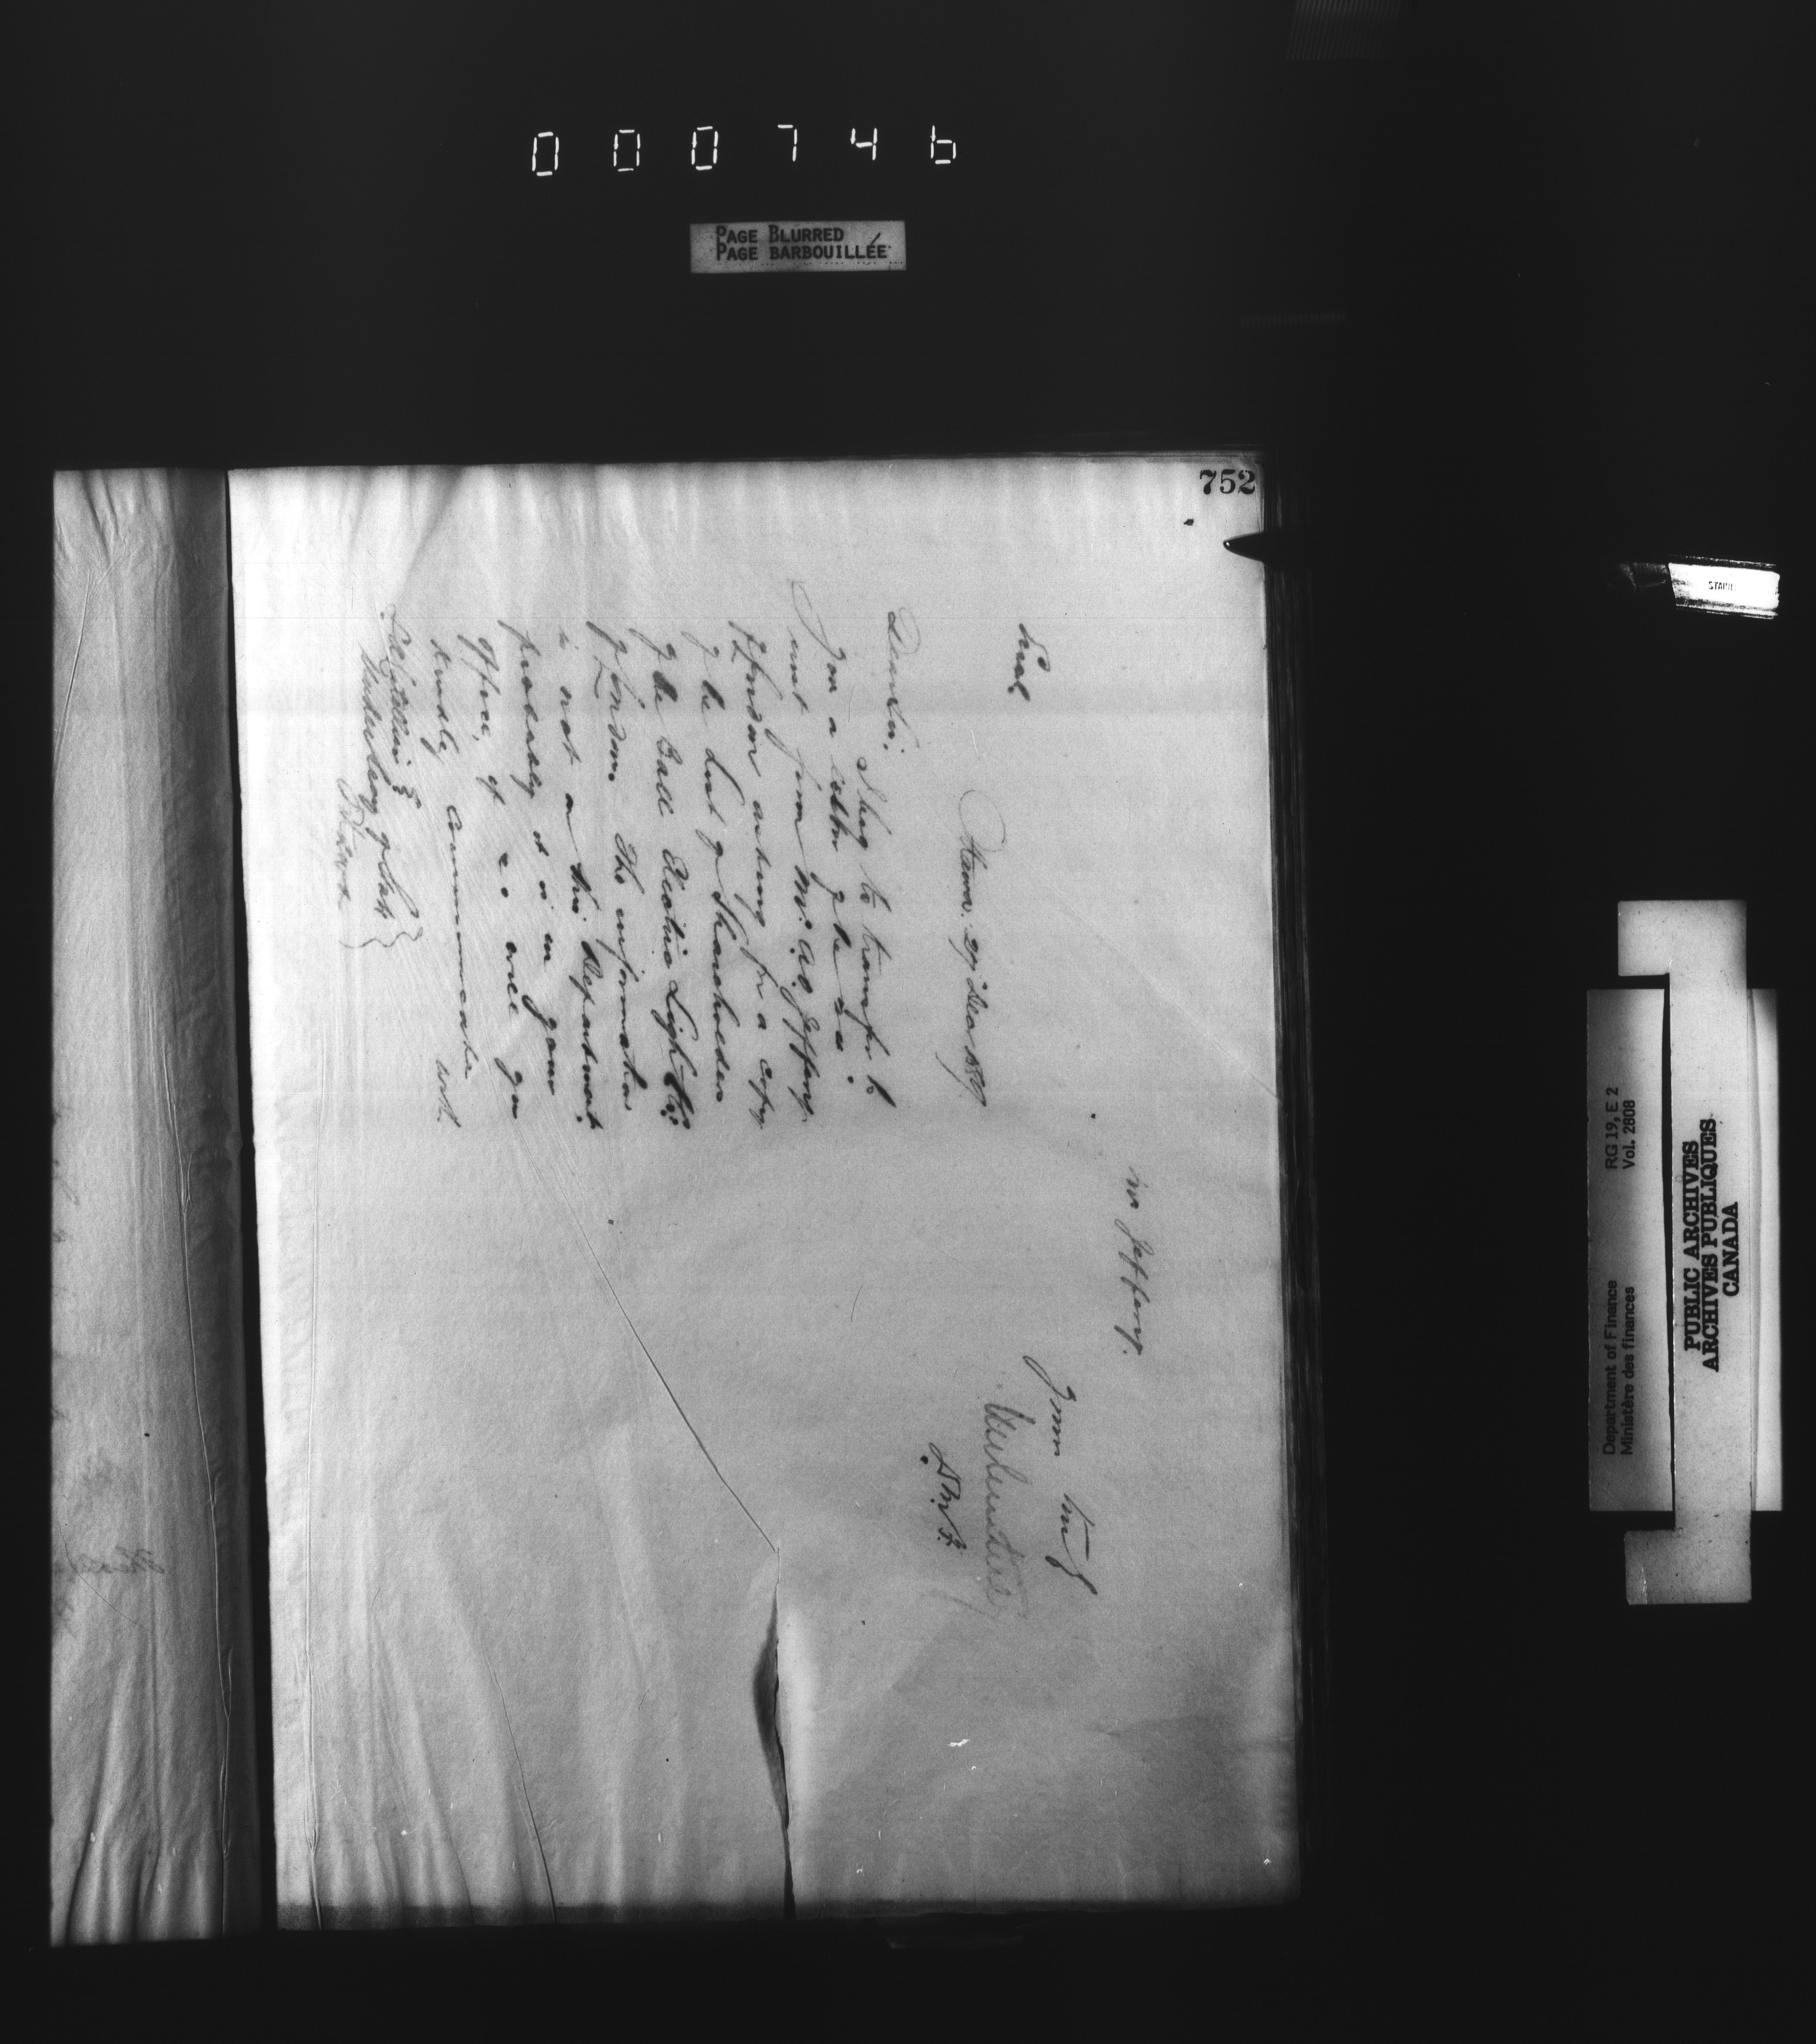 000746
PAGE BLURRED
PAGE BARBOUILLÉE
752
Ottawa. 29 Decr 1889
Dear Sir,
I beg to transfer to
you a letter of the
inst from Mr. A. O. Jeffery
of London asking for a copy
of the List of Shareholders
of the Ball Electric Light Co
of London. The information
is not in this Department
probably it is in your
office, if so will you
kindly communicate with
Under Secy of State
Ottawa
Mr Jeffery.
Yours truly
D.M.F.
STAPL
Department of Finance RG 19, E 2
Ministère des finances Vol. 2808
PUBLIC ARCHIVES
ARCHIVES PUBLIQUES
CANADA